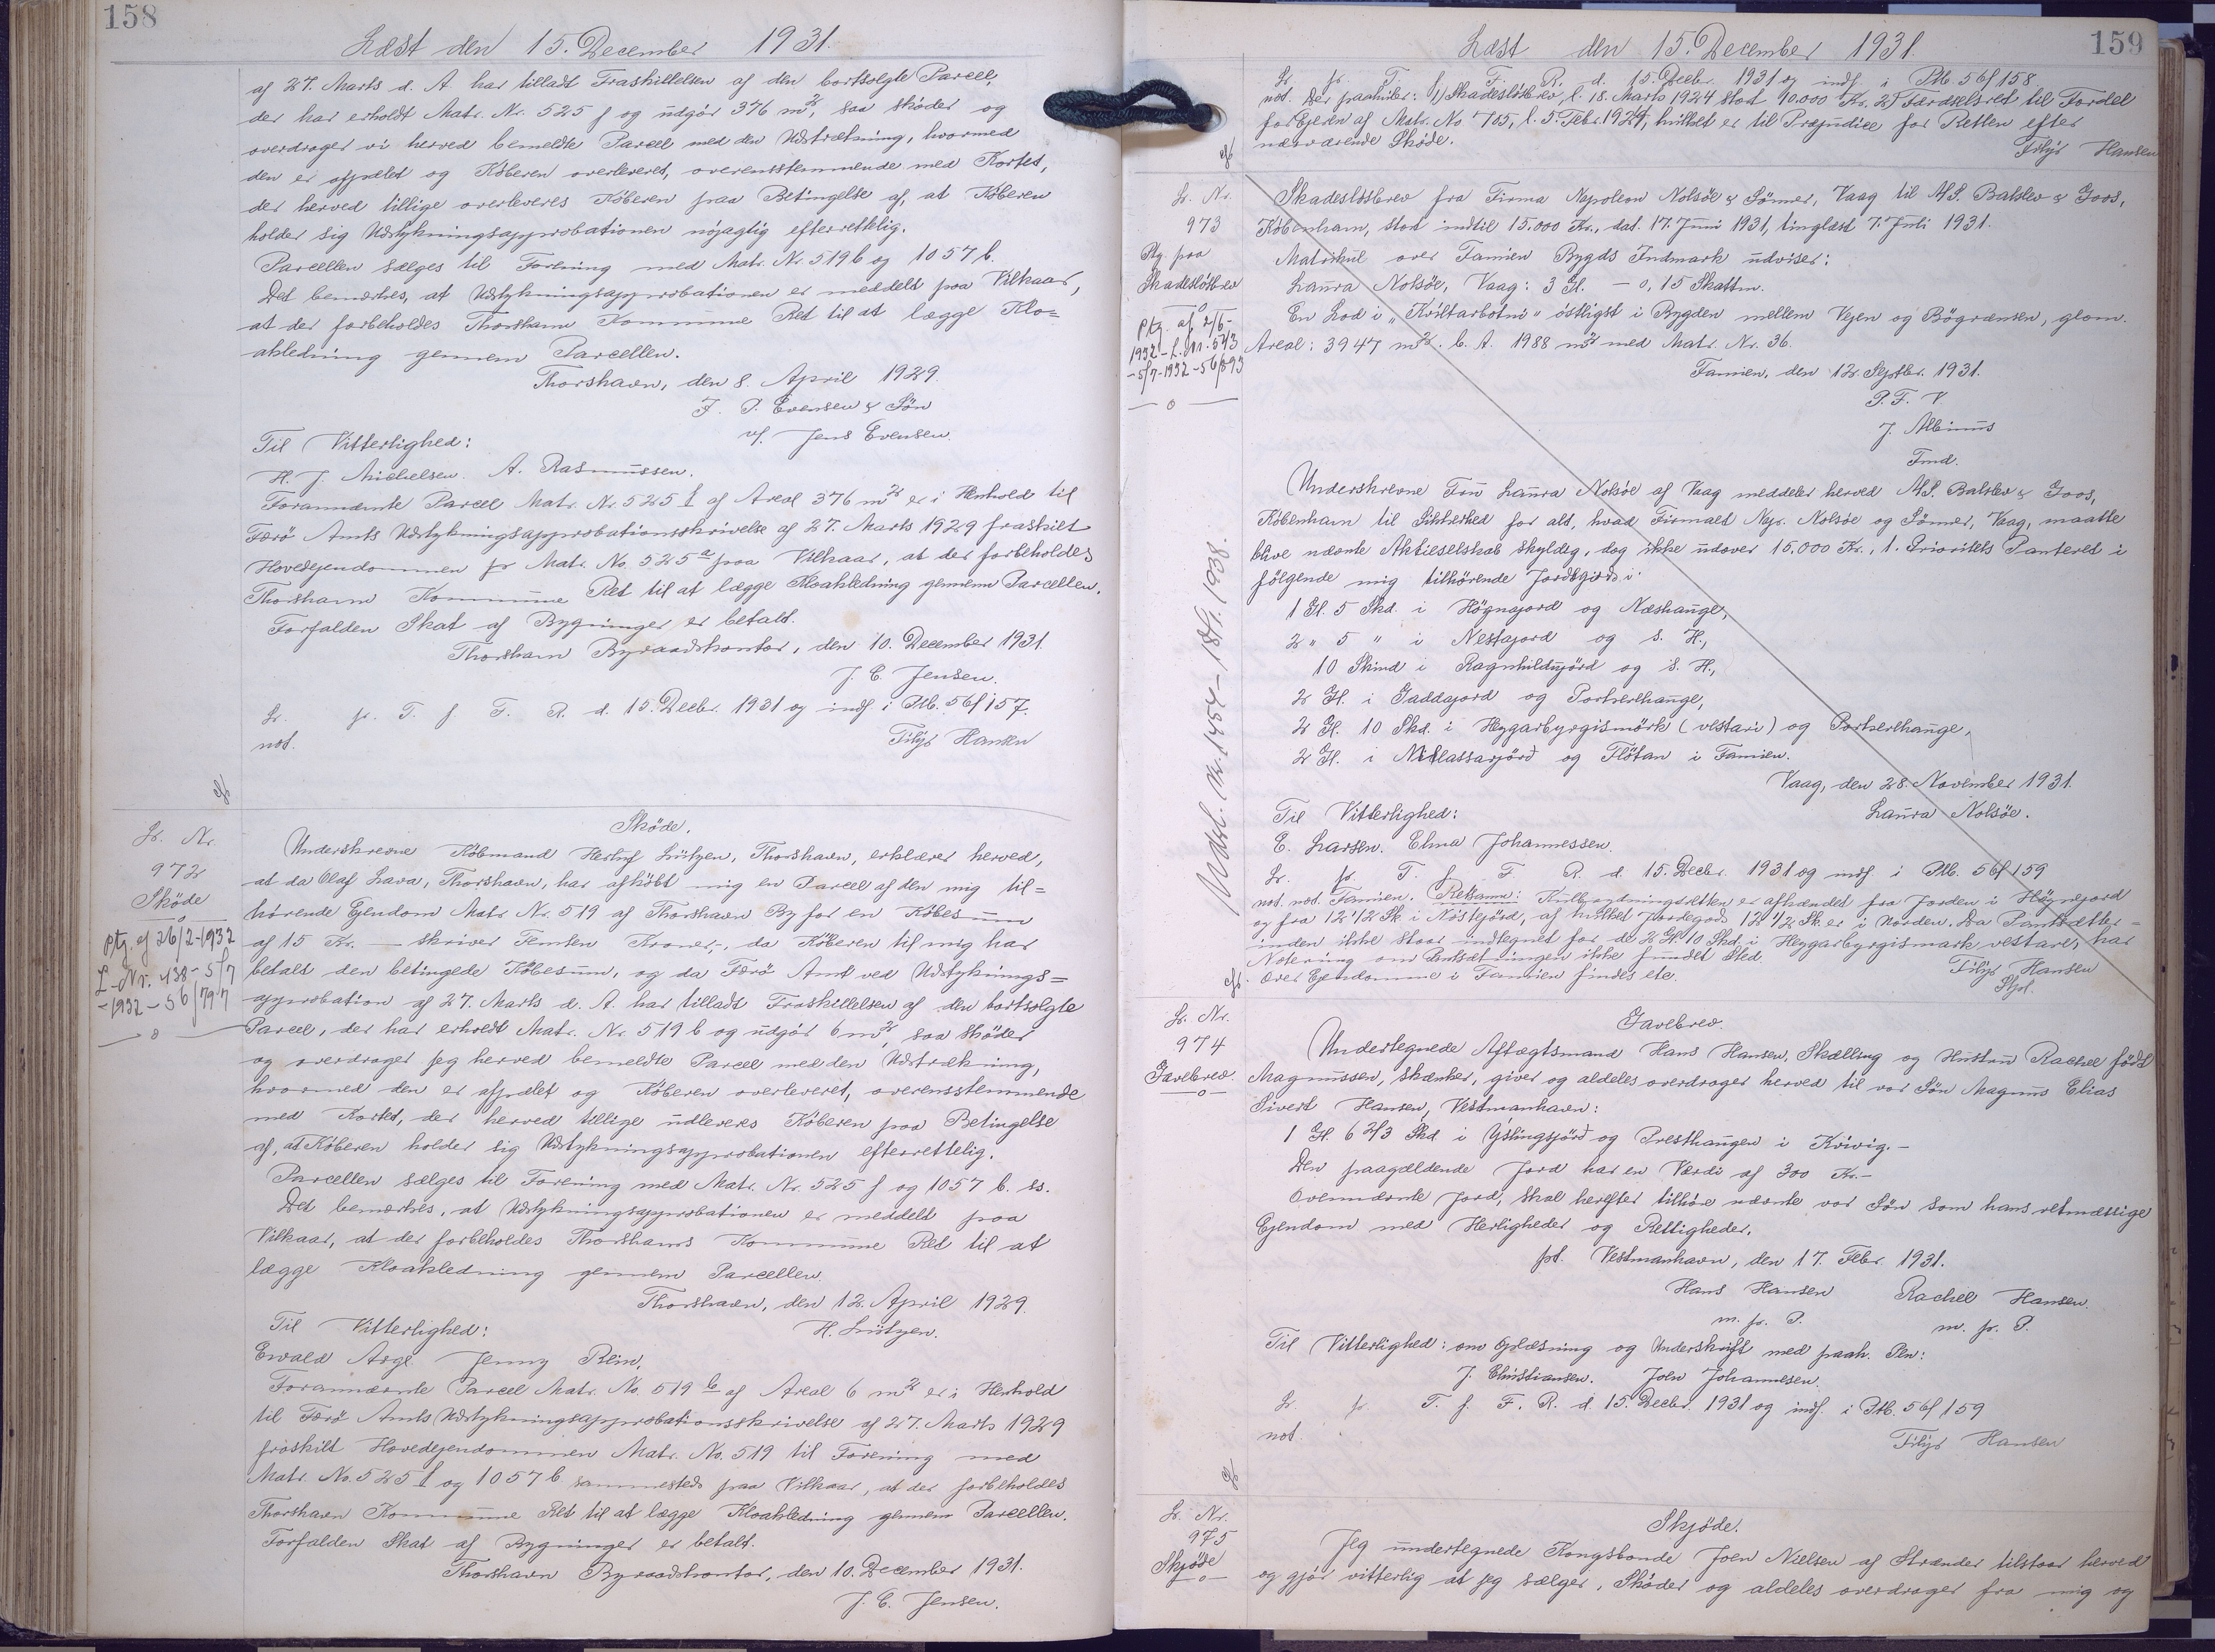 158
Læst den 15. December 1931.
af 27. Marts d. A. har tilladt Fraskillelsen af den bortsolgte Parcel,
der har erholdt Matr. Nr. 525 f og udgør 376 m², saa skøder og
overdrager vi herved bemeldte Parcel med den Udstrækning, hvormed
den er afpælet og Køberen overleveret, overensstemmende med Kortet,
der herved tillige overleveres Køberen paa Betingelse af, at Køberen
holder sig Udstykningsapprobationen nøjagtig efterrettelig.
Parcellen sælges til Forening med Matr. Nr. 519b og 1057b.
Det bemærkes, at Udstykningsapprobationen er meddelt paa Vilkaar,
at der forbeholdes Thorshavn Kommune Ret til at lægge Klo=
akledning gennem Parcellen.
Thorshavn, den 8. April 1929.
J. P. Evensen & Søn
v/. Jens Evensen.
Til Vitterlighed:
H. J. Michelsen. A. Rasmussen.
Forannævnte Parcel Matr. Nr. 525 f af Areal 376 m² er i Henhold til
Færø Amts Udstykningsapprobationsskrivelse af 27. Marts 1929 fraskilt
Hovedejendommen pr Matr. No. 525 a paa Vilkaar, at der forbeholdes
Thorshavn Kommune Ret til at lægge Kloakledning gennem Parcellen.
Forfalden Skat af Bygninger er betalt.
Thorshavn Byraadskontor, den 10. December 1931.
J. C. Jensen.
Lr. pr. T. f. F. R. d. 15. Decbr. 1931 og indf. i Ptb. 56f 157.
not. Filip Hansen
Lr. Nr.
972
Skøde
Ptg. af 26/2-1932
L-Nr. 438 - 5/7
-1932 - 56/797
Skøde.
Underskrevne Købmand Herluf Lützen, Thorshavn, erklærer herved,
at da Olaf Lava, Thorshavn, har afkøbt mig en Parcel af den mig til=
hørende Ejendom Matr. Nr. 519 af Thorshavn By for en Købesum
af 15 Kr. — skriver Femten Kroner, -, da Køberen til mig har
betalt den betingede Købesum, og da Færø Amt ved Udstyknings=
approbation af 27. Marts d. A. har tilladt Fraskillelsen af den bortsolgte
Parcel, der har erholdt Matr. Nr. 519 b og udgør 6 m², saa skøder
og overdrager jeg herved bemeldte Parcel med den Udstrækning,
hvormed den er afpælet og Køberen overleveret, overensstemmende
med Kortet, der herved tillige udleveres Køberen paa Betingelse
af, at Køberen holder sig Udstykningsapprobationen efterrettelig.
Parcellen sælges til Forening med Matr. Nr. 525 f og 1057 b. ss.
Det bemærkes, at Udstykningsapprobationen er meddelt paa
Vilkaar, at der forbeholdes Thorshavns Kommune Ret til at
lægge Kloakledning gennem Parcellen.
Thorshavn, den 12. April 1929.
Til Vitterlighed: H. Lützen.
Ewald Arge. Jenny Rein.
Forannævnte Parcel Matr. No. 519 b af Areal 6 m² er i Henhold
til Færø Amts Udstykningsapprobationsskrivelse af 27. Marts 1929
fraskilt Hovedejendommen Matr. No. 519 til Forening med
Matr. No. 525 f og 1057 b sammesteds paa Vilkaar, at der forbeholdes
Thorshavn Kommune Ret til at lægge Kloakledning gennem Parcellen.
Forfalden Skat af Bygninger er betalt.
Thorshavn Byraadskontor, den 10. December 1931.
J. C. Jensen.
159
Læst den 15. December 1931.
Lr. pr. T. f. F. R. d. 15. Decbr. 1931 og indf. i Ptb 56f 158
not. Der paahviler: 1) Skadesløsbrev, l. 18. Marts 1924 stort 40.000 Kr. 2) Færdselsret til Fordel
for Ejeren af Matr. No 705, l. 5. Febr. 1929, hvilket er til Præjudice for Retten efter
nærværende Skøde.
Filip Hansen
Lr. Nr.
973
Ptg. paa
Skadesløsbrev
Ptg. af 2/6-
1932 - L. Nr. 543
- 5/7-1932 - 56/893
Udsl. nr. 1454 - 18/1. 1938.
Skadesløsbrev fra Firma Napoleon Nolsøe & Sønner, Vaag til A/S. Balslev & Goos,
København, stort indtil 15.000 Kr., dat. 17. Juni 1931, tinglæst 7. Juli 1931.
Matrikul over Famien Bygds Indmark udviser:
Laura Nolsøe, Vaag: 3 Gl. - 0,15 Skattm.
En Lod i "Kviltarbotni" østligst i Bygden mellem Vejen og Bøgrænsen, glam.
Areal: 3947 m². b. A. 1988 m² med Matr. Nr. 36.
Famien, den 12. Septbr. 1931.
P. F. V.
J. Albinus
Fmd.
Underskrevne Fru Laura Nolsøe af Vaag meddeler herved A/S. Balslev & Goos,
København til Sikkerhed for alt, hvad Firmaet Nap. Nolsøe og Sønner, Vaag, maatte
blive nævnte Aktieselskab skyldig, dog ikke udover 15.000 Kr., 1. Prioritets Panteret i
følgende mig tilhørende Jordegods i:
1 Gl. 5 Skd. i Høgnajord og Næshauge,
2 " 5 " i Nestajord og s. H.,
10 Skind i Ragnhildujørd og s. H.,
2 Gl. i Gaddajord og Portserhauge,
2 Gl. 10 Skd. i Heygarbyrgismørk (vestari) og Portserhauge,
2 Gl. i Niklassarjørð og Fløtan i Famien.
Vaag, den 28. November 1931.
Til Vitterlighed: Laura Nolsøe.
E. Larsen. Elma Johannessen.
Lr. pr. T. f. F. R. d. 15. Decbr. 1931 og indf. i Ptb. 56f 159
not. not. Famien. Retsanm: Kulbrydningsretten er afhændet fra Jorden i Høgnejord
og fra 12 1/2 Sk. i Nøstejørd, af hvilket Jordegods 12 1/2 Sk. er i Norden. Da Pantsætter=
inden ikke staar indtegnet for de 2 Gl. 10 Skd. i Heygarbyrgismark vestare, har
Notering om Pantsætningen ikke fundet Sted.
over Ejendomme i Famien findes etc.
Filip Hansen
Lr. Nr.
974
Gavebrev.
Gavebrev.
Undertegnede Aftægtsmand Hans Hansen, Skælling og Hustru Rachel født
Magnussen, skænker, giver og aldeles overdrager herved til vor Søn Magnus Elias
Sivert Hansen, Vestmanhavn:
1 Gl. 6 2/3 Skd. i Ýslingsjörð og Presthaugen i Kvivig. -
Den paagældende Jord har en Værdi af 300 Kr. -
Ovennævnte Jord, skal herefter tilhøre nævnte vor Søn som hans retmæssige
Ejendom med Herligheder og Rettigheder.
pt. Vestmanhavn, den 17. Febr. 1931.
Hans Hansen Rachel Hansen.
m. p. P. m. p. P.
Til Vitterlighed: om Oplæsning og Underskrift med paah. Pen:
J. Christiansen. Joen Johannesen.
Lr. pr. T. f. F. R. d. 15. Decbr. 1931 og indf. i Ptb. 56f 159
not. Filip Hansen
Lr. Nr.
975
Skjøde
Skjøde.
Jeg undertegnede Kongsbonde Joen Nielsen af Strænder tilstaar herved
og gjør vitterlig at jeg sælger, skøder og aldeles overdrager fra mig og